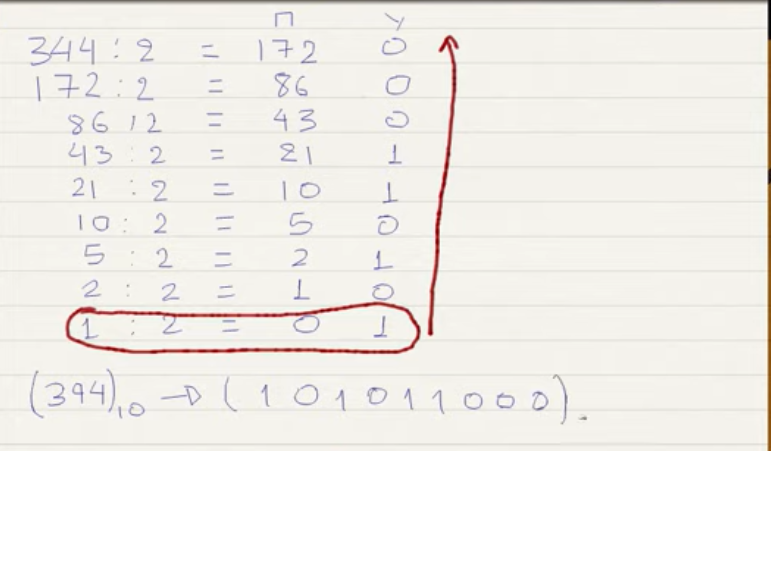 Π Υ
344 : 2 = 172 0
172 : 2 = 86 0
86 : 2 = 43 0
43 : 2 = 21 1
21 : 2 = 10 1
10 : 2 = 5 0
5 : 2 = 2 1
2 : 2 = 1 0
1 : 2 = 0 1
(394)10 → (101011000).